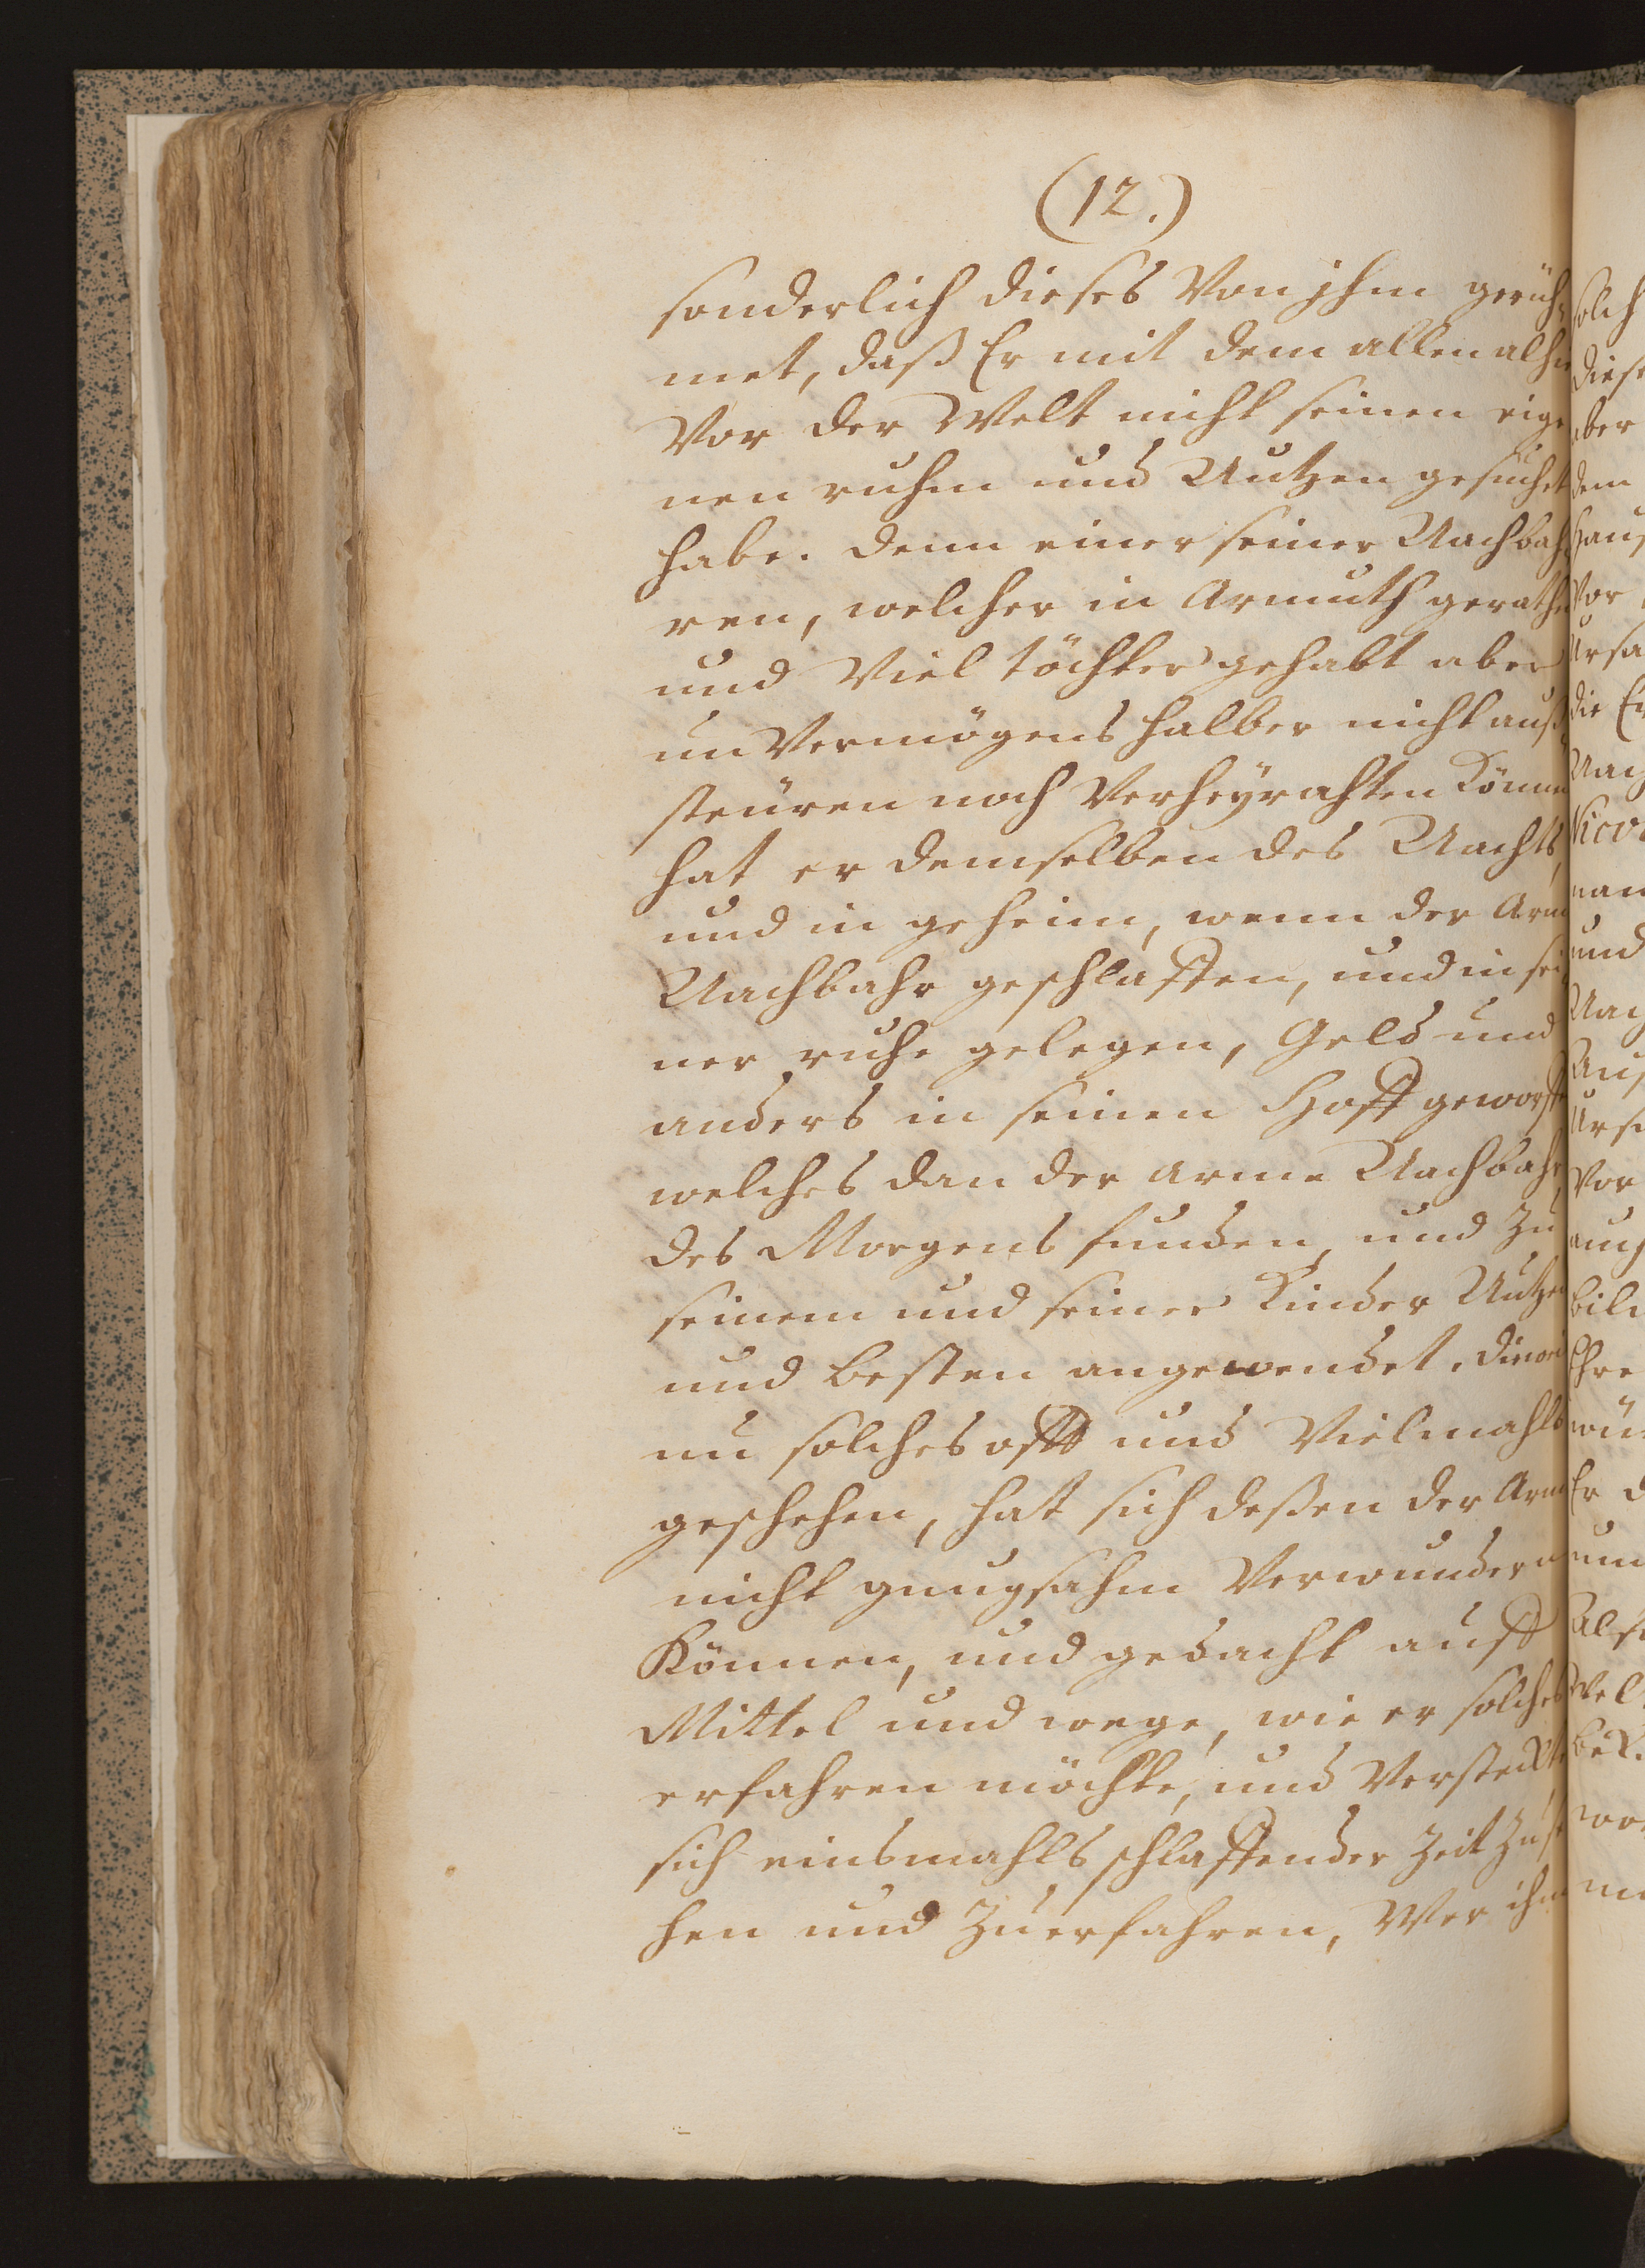 (12.)
sonderlich dieses Von jhm gerüh=
met, daß Er mit dem allen alhie
Vor der Welt nicht seinen eige
nen ruhm und Nutzen gesuchet
habe. denn einer seiner Nachbah=
ren, welcher in Armuth gerathen
und Viel töchter gehabt aber
un Vermögens halber nicht auß
steüren noch Verheyrahten Können
hat er demselben des Nachts,
und in geheim, wenn der Arme
Nachbahr geschlaffen, und in sei
ner ruhe gelegen, Geld und
anders in seinen Hoff geworffen
welches dan der arme Nachbahr,
des Morgens funden, und Zu
seinem und seiner Kinder Nutzen
und besten angewendet. die weil
nu solches offt und Vielmahls
geschehen, hat sich deßen der Arme
nicht gnugsahm Verwundern
Können, und gedacht auff
Mittel und wege, wie er solches
erfahren möchte, und Versteckte
sich einsmahls schlaffender Zeit Zuse
hen und Zuerfahren, Wer ihm
solch
diese
aber
dem
Haus
Vor
Ursa
die
Nach
Nico
nam
und
Nach
Ursa
Vor
auch
bild
Ehre
Er d
um
Also